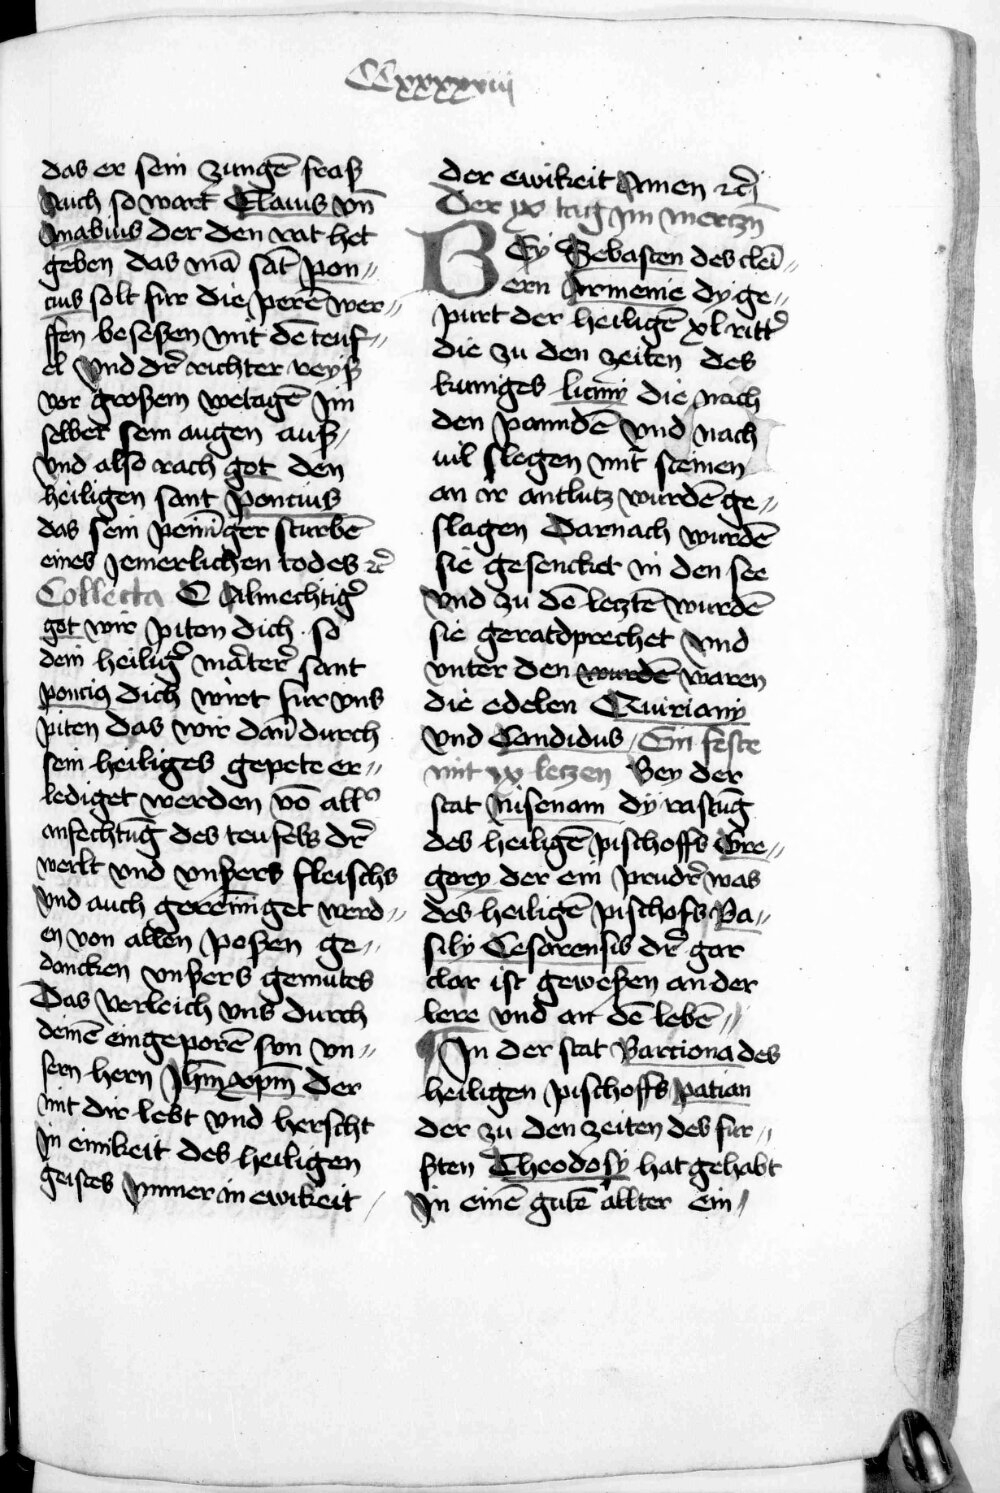 CCxxxxviii
das er sein zungē fraß
Auch so wart Claius vn̄
Anabius der den rat het
geben das mā sāt pon〃
cius solt fur die perē wer〃
ffen beseßen mit dē teuf〃
el vnd dr̄ richter reyß
vor großem wetagē im
selber sein augen auß
vnd also rach got den
heiligen sant poncius
das sein peinīger sturbē
eines jemerlichen todes ꝛc̄
Collecta O Almechtigr̄
got wir piten dich so
dein heiligr̄ māterr̄ sant
poncius dich wirt fur vns
piten das wir dan̄ durch
sein heiliges gepete er〃
lediget werden vō allr̄
anfechtūg des teufels dr̄
werlt vnd vnßers fleischs
vnd auch gereīniget werd〃
en von allen poßen ge〃
dancken vnßers gemutes
Das verleich vns durch
deinē eingeporē sun vn〃
sern hern Jhm̄ xpm̄ der
mit dir lebt vnd herscht
in einikeit des heiligen
geistes ymmer in ewikeit
der ewikeit Amen ꝛc̄
Der ix tag im mertzn̄
BEy Sebasten des cleī〃
ern Armenie dy ge〃
purt der heiligē xl rittr̄
die zu den zeiten des
kuniges liciny die nach
den panndē vnd nach
uil slegen mit steinen
an ir antlutz wurdē ge〃
slagen Darnach wurdē
sie gesencket in den see
vnd zu dē letztē wurdē
sie geratdprechet vnd
vnter den wurdē waren
die edelen Quiriany
vnd Candidus Ein feste
mit ix letzen Bey der
stat nisenam dy rastūg
des heiligē pischoffs Gre〃
gory der ein prudr̄ was
des heiligē pischofs Ba〃
sily Cesarensis dr̄ gar
clar ist geweßen an der
lere vnd an dē lebē〃
¶ In der stat Barciona des
heiligen pischoffs patian
der zu den zeiten des fur〃
sten Theodosy hat gehabt
in einē gutē allter ein